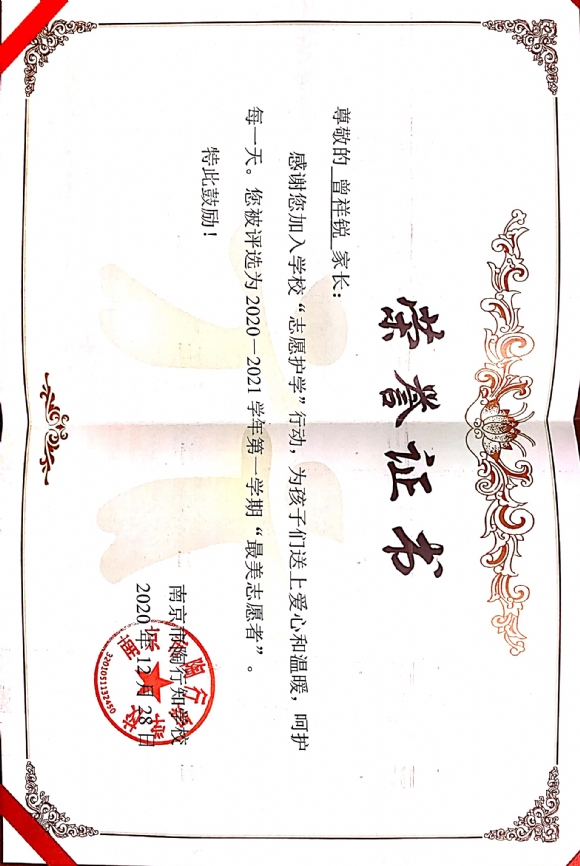 荣誉证书
尊敬的 曾祥锐 家长：
感谢您加入学校“志愿护学”行动，为孩子们送上爱心和温暖，呵护
每一天。您被评选为2020—2021学年第一学期“最美志愿者”。
特此鼓励！
南京市陶行知学校
2020年12月28日